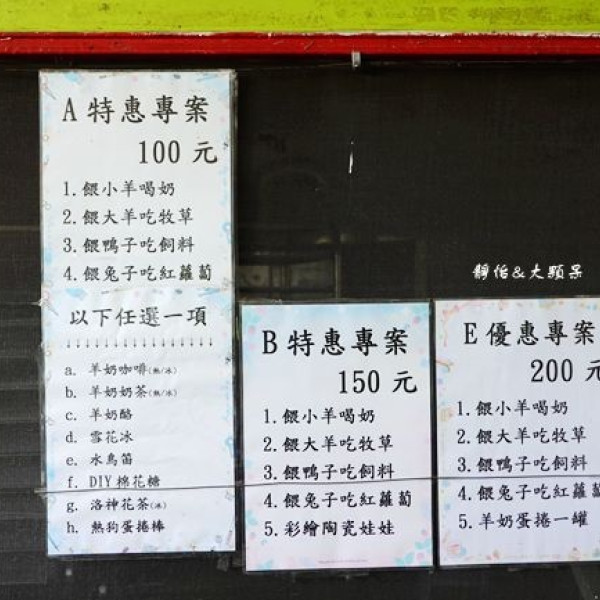 A 特惠專案
100 元
1. 餵小羊喝奶
2. 餵大羊吃牧草
3. 餵鴨子吃飼料
4. 餵兔子吃紅蘿蔔
以下任選一項
↓↓↓↓↓↓↓↓↓↓↓↓↓
a. 羊奶咖啡(熱/冰)
b. 羊奶奶茶(熱/冰)
c. 羊奶酪
d. 雪花冰
e. 水鳥笛
f. DIY 棉花糖
g. 洛神花茶(冰)
h. 熱狗蛋捲棒
B 特惠專案
150 元
1. 餵小羊喝奶
2. 餵大羊吃牧草
3. 餵鴨子吃飼料
4. 餵兔子吃紅蘿蔔
5. 彩繪陶瓷娃娃
靜怡&大顆呆
E 優惠專案
200 元
1. 餵小羊喝奶
2. 餵大羊吃牧草
3. 餵鴨子吃飼料
4. 餵兔子吃紅蘿蔔
5. 羊奶蛋捲一罐